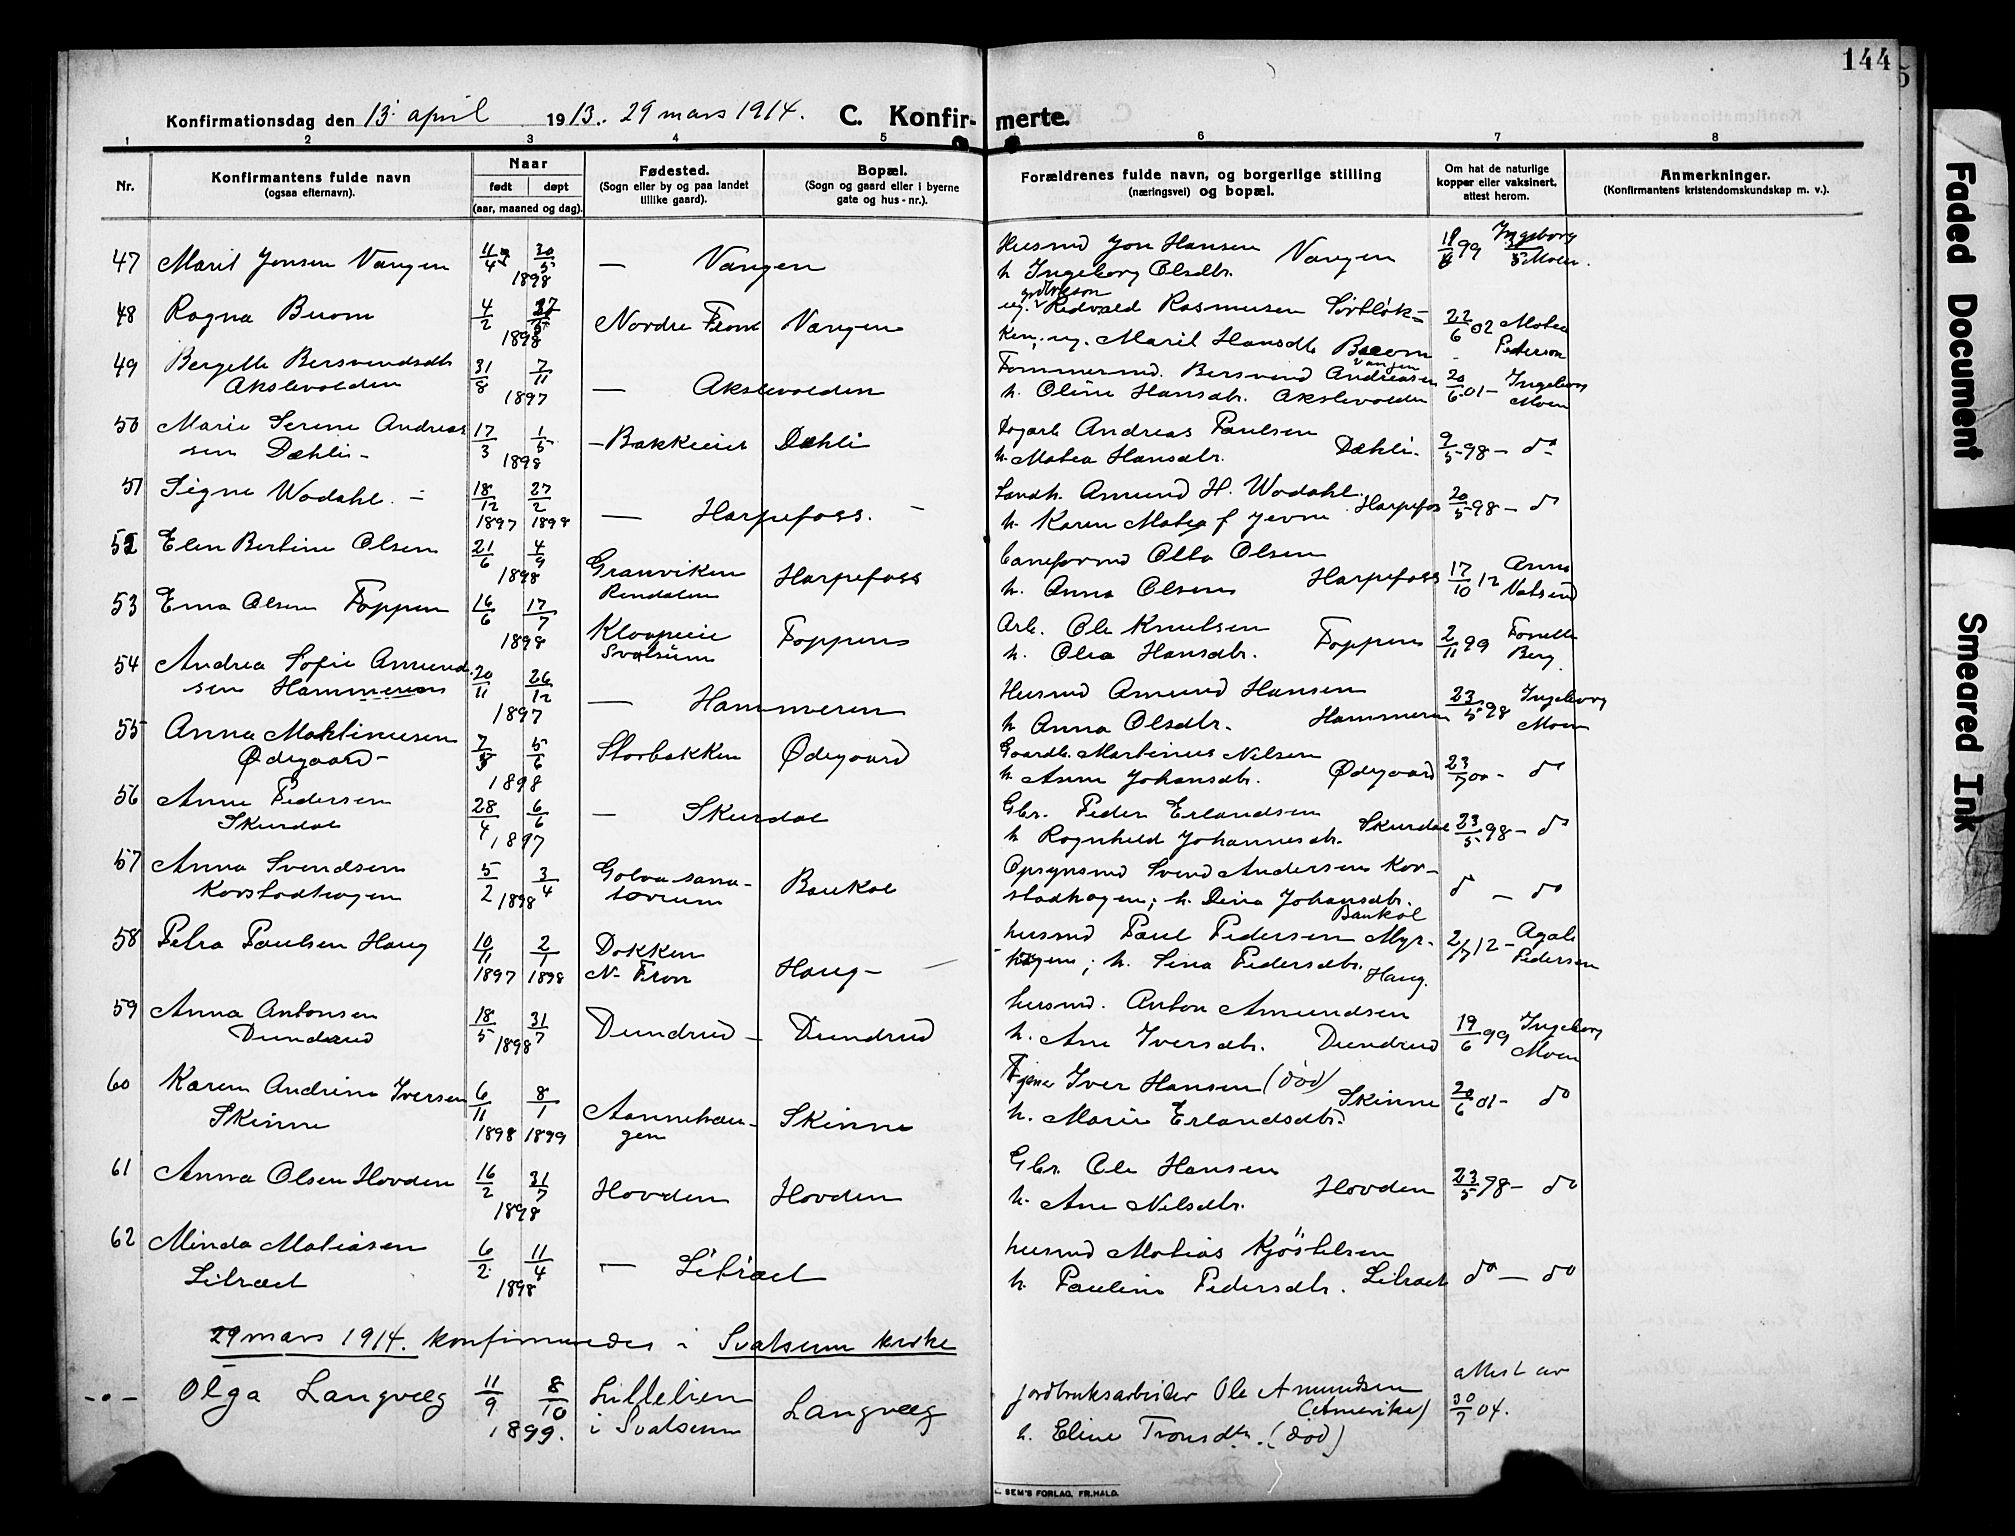 144
Konfirmationsdag den 13 april 1913. 29 mars 1914. C. Konfir- merte.
1 2 3 4 5 6 7 8
Nr.
Konfirmantens fulde navn
(ogsaa efternavn).
Naar
født døpt
(aar, maaned og dag).
Fødested.
(Sogn eller by og paa landet
tillike gaard).
Bopæl.
(Sogn og gaard eller i byerne
gate og hus-nr.).
Forældrenes fulde navn, og borgerlige stilling
(næringsvei) og bopæl.
Om hat de naturlige
kopper eller vaksinert,
attest herom.
Anmerkninger.
(Konfirmantens kristendomskundskap m. v.).
47 Marit Jonsen Vangen 11/4 30/5 1898 — Vangen Husmd Jon Hansen Vangen 99 Ingeborg
h Ingeborg Olsdtr. Moen.
48 Ragna Buom 4/2 1898 Nordre Fron Vangen Redvald Rasmusen 22/6 02 Matea
ug. Marit Hansdtr Pederson
49 Bergette Bersvendsdtr 31/8 7/11 1897 — Akslevolden Tømmermd. Bersvend Andreasen 20/6 01 - Ingeborg
Akslevolden h. Oline Hansdtr. Akslevolden Moen
50 Marie Serine Andreas 17/3 1/5 1898 - Bakkeeiet Dæhli Andreas Paulsen Dæhli. 9/5 98 – do
sen Dæhli – h. Matea Hansdtr.
51 Signe Wadahl. 18/12 1897 27/2 1898 — Harpefoss. Landh. Amund H. Wadahl Harpefos 20/5 98 – do
h. Karen Matea f Jevne
52 Elen Bertine Olsen 21/6 4/9 1898 Granviken Harpefoss Otto Olsen Harpefoss 17/10 12 Anna
Rendalen h. Anna Olsen
53 Ema Olsen Foppen 16/6 17/7 1898 Foppen Arb. Ole Knutsen Foppen 2/11 99
Svatsum h. Olea Hansdtr. Berg
54 Andrea Sofie Amund 20/11 26/12 1897 — Hammeren Husmd Amund Hansen 23/5 98 Ingeborg
sen Hammeren h Anna Olsdtr. Hammeren Moen
55 Anna Martinusen 7/3 5/6 1898 Storbakken Ødegaard Gaardb. Martinus Nilsen
Ødegaard – h Anne Johansdtr. Ødegaard 23/7 00 – do
56 Anne Pedersen 28/4 6/6 1897 — Skurdal Gbr. Peder Erlandsen
Skurdal h Ragnhild Johannesdtr. Skurdal 23/5 98 – do
57 Anna Svendsen 5/2 3/4 1898 Golaa sana- Baukol Opsynsmd Svend Andersen Kor-
Korstadhagen torium stadhagen; h. Dina Johansdtr. do — do
Baukol
58 Petra Paulsen Haug 10/11 1897 2/1 1898 Dokken Haug – husmd Paul Pedersen Myr- 2/7 12 – Agate
N. Fron hagen; h. Sina Pedersdtr. Haug. Pedersen
59 Anna Antonsen 18/5 31/7 1898 Dundrud – Dundrud husmd. Anton Amundsen 19/6 99 Ingeborg
Dundrud h. Ane Iversdtr. Dundrud Moen
60 Karen Andrine Iversen 6/11 1898 8/1 1899 Aannehau- Skinne Iver Hansen (død) Skinne 20/6 01 – do
Skinne gen h. Marie Erlandsdtr.
61 Anna Olsen Hovden 16/2 31/7 1898 Hovden Hovden Gbr. Ole Hansen Hovden 23/5 98 – do
h. Ane Nilsdtr.
62 Minda Matiasen 6/2 11/4 1898 — Libræt husmd Matias Kjøstelsen
Libræt h. Pauline Pedersdtr. Libræt do — do
29 mars 1914. konfirmeredes i Svatsum kirke
-o- Olga Langvæg 11/9 8/10 1899. Lillelien Langvæg jordbruksarbeider Ole Amundsen attest av
i Svatsum (Amerika) 30/7 04.
h. Eline Tronsdtr. (død)
SEM'S FORLAG, FR.HALD.
Faded Document
Smeared Ink